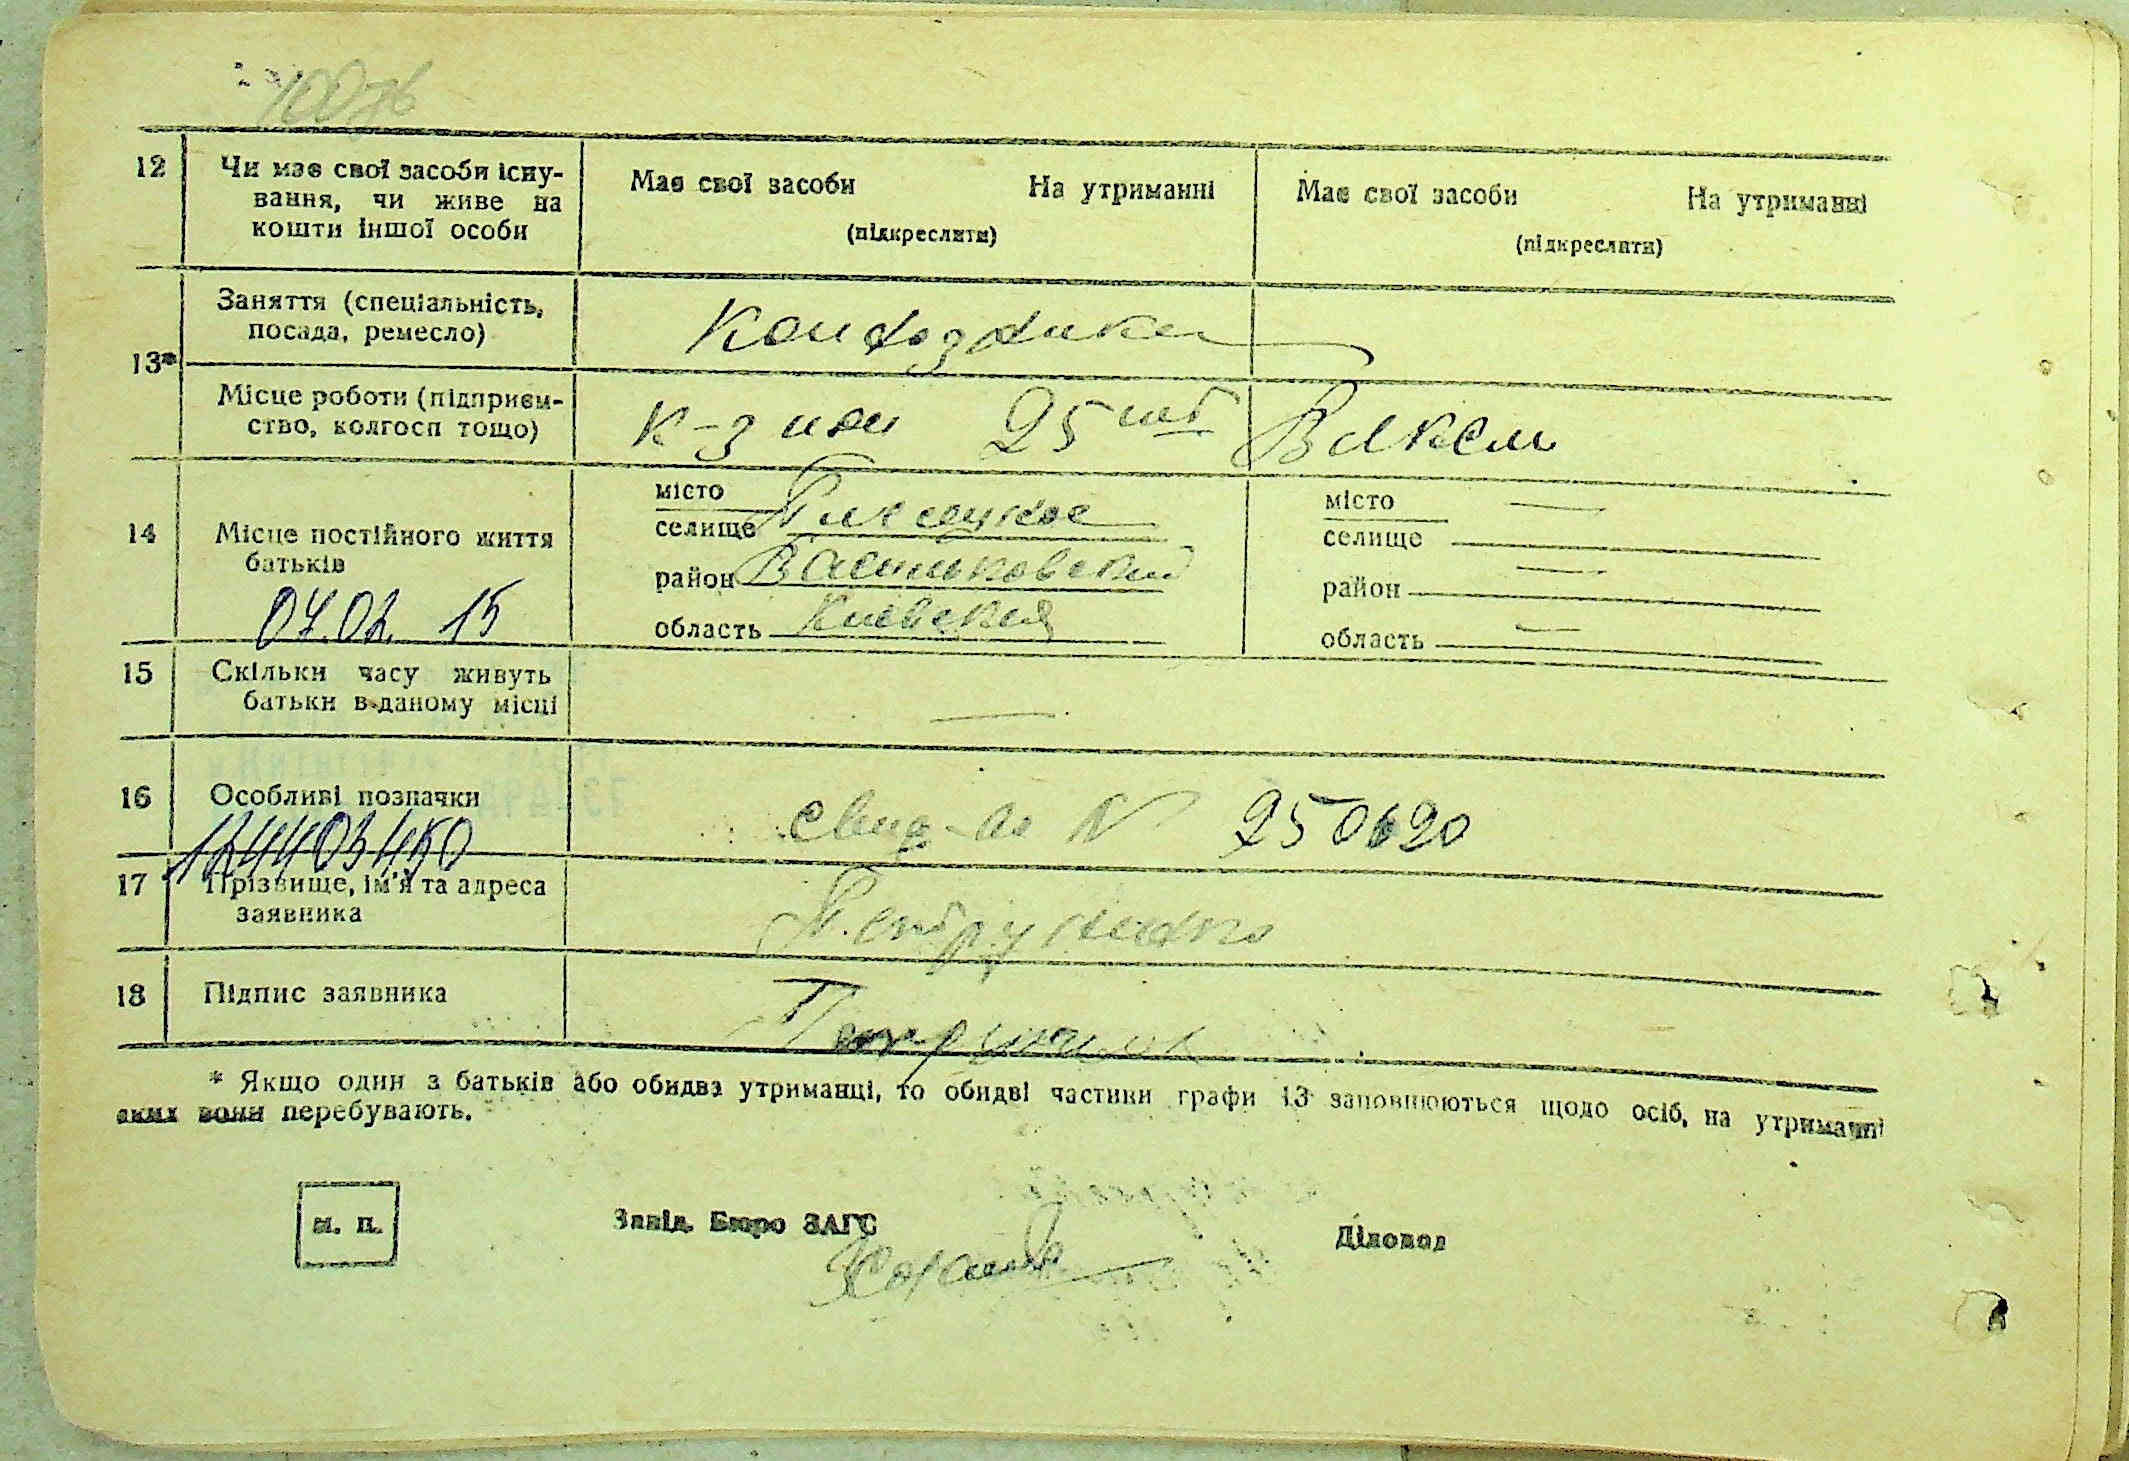 12
Чи має свої засоби існу-
вання, чи живе на
кошти іншої особи
Має свої засоби На утриманні
(підкреслити)
Має свої засоби На утриманні
(підкреслити)
13*
Заняття (спеціальність,
посада, ремесло)
Місце роботи (підприєм-
ство, колгосп тощо)
к-з им 25 ВЛКСМ
14
Місце постійного життя
батьків
07.02. 15
місто
селище Плесецкое
район Васильковский
область Киевская
місто —
селище
район —
область —
15
Скільки часу живуть
батьки в даному місці
—
16
Особливі позначки
свид-во N 250620
17
Прізвище, ім'я та адреса
заявника
18
Підпис заявника
* Якщо один з батьків або обидва утриманці, то обидві частини графи 13 заповнюються щодо осіб, на утриманні
яких вони перебувають.
м. п.
Завід. Бюро ЗАГС
Діловод